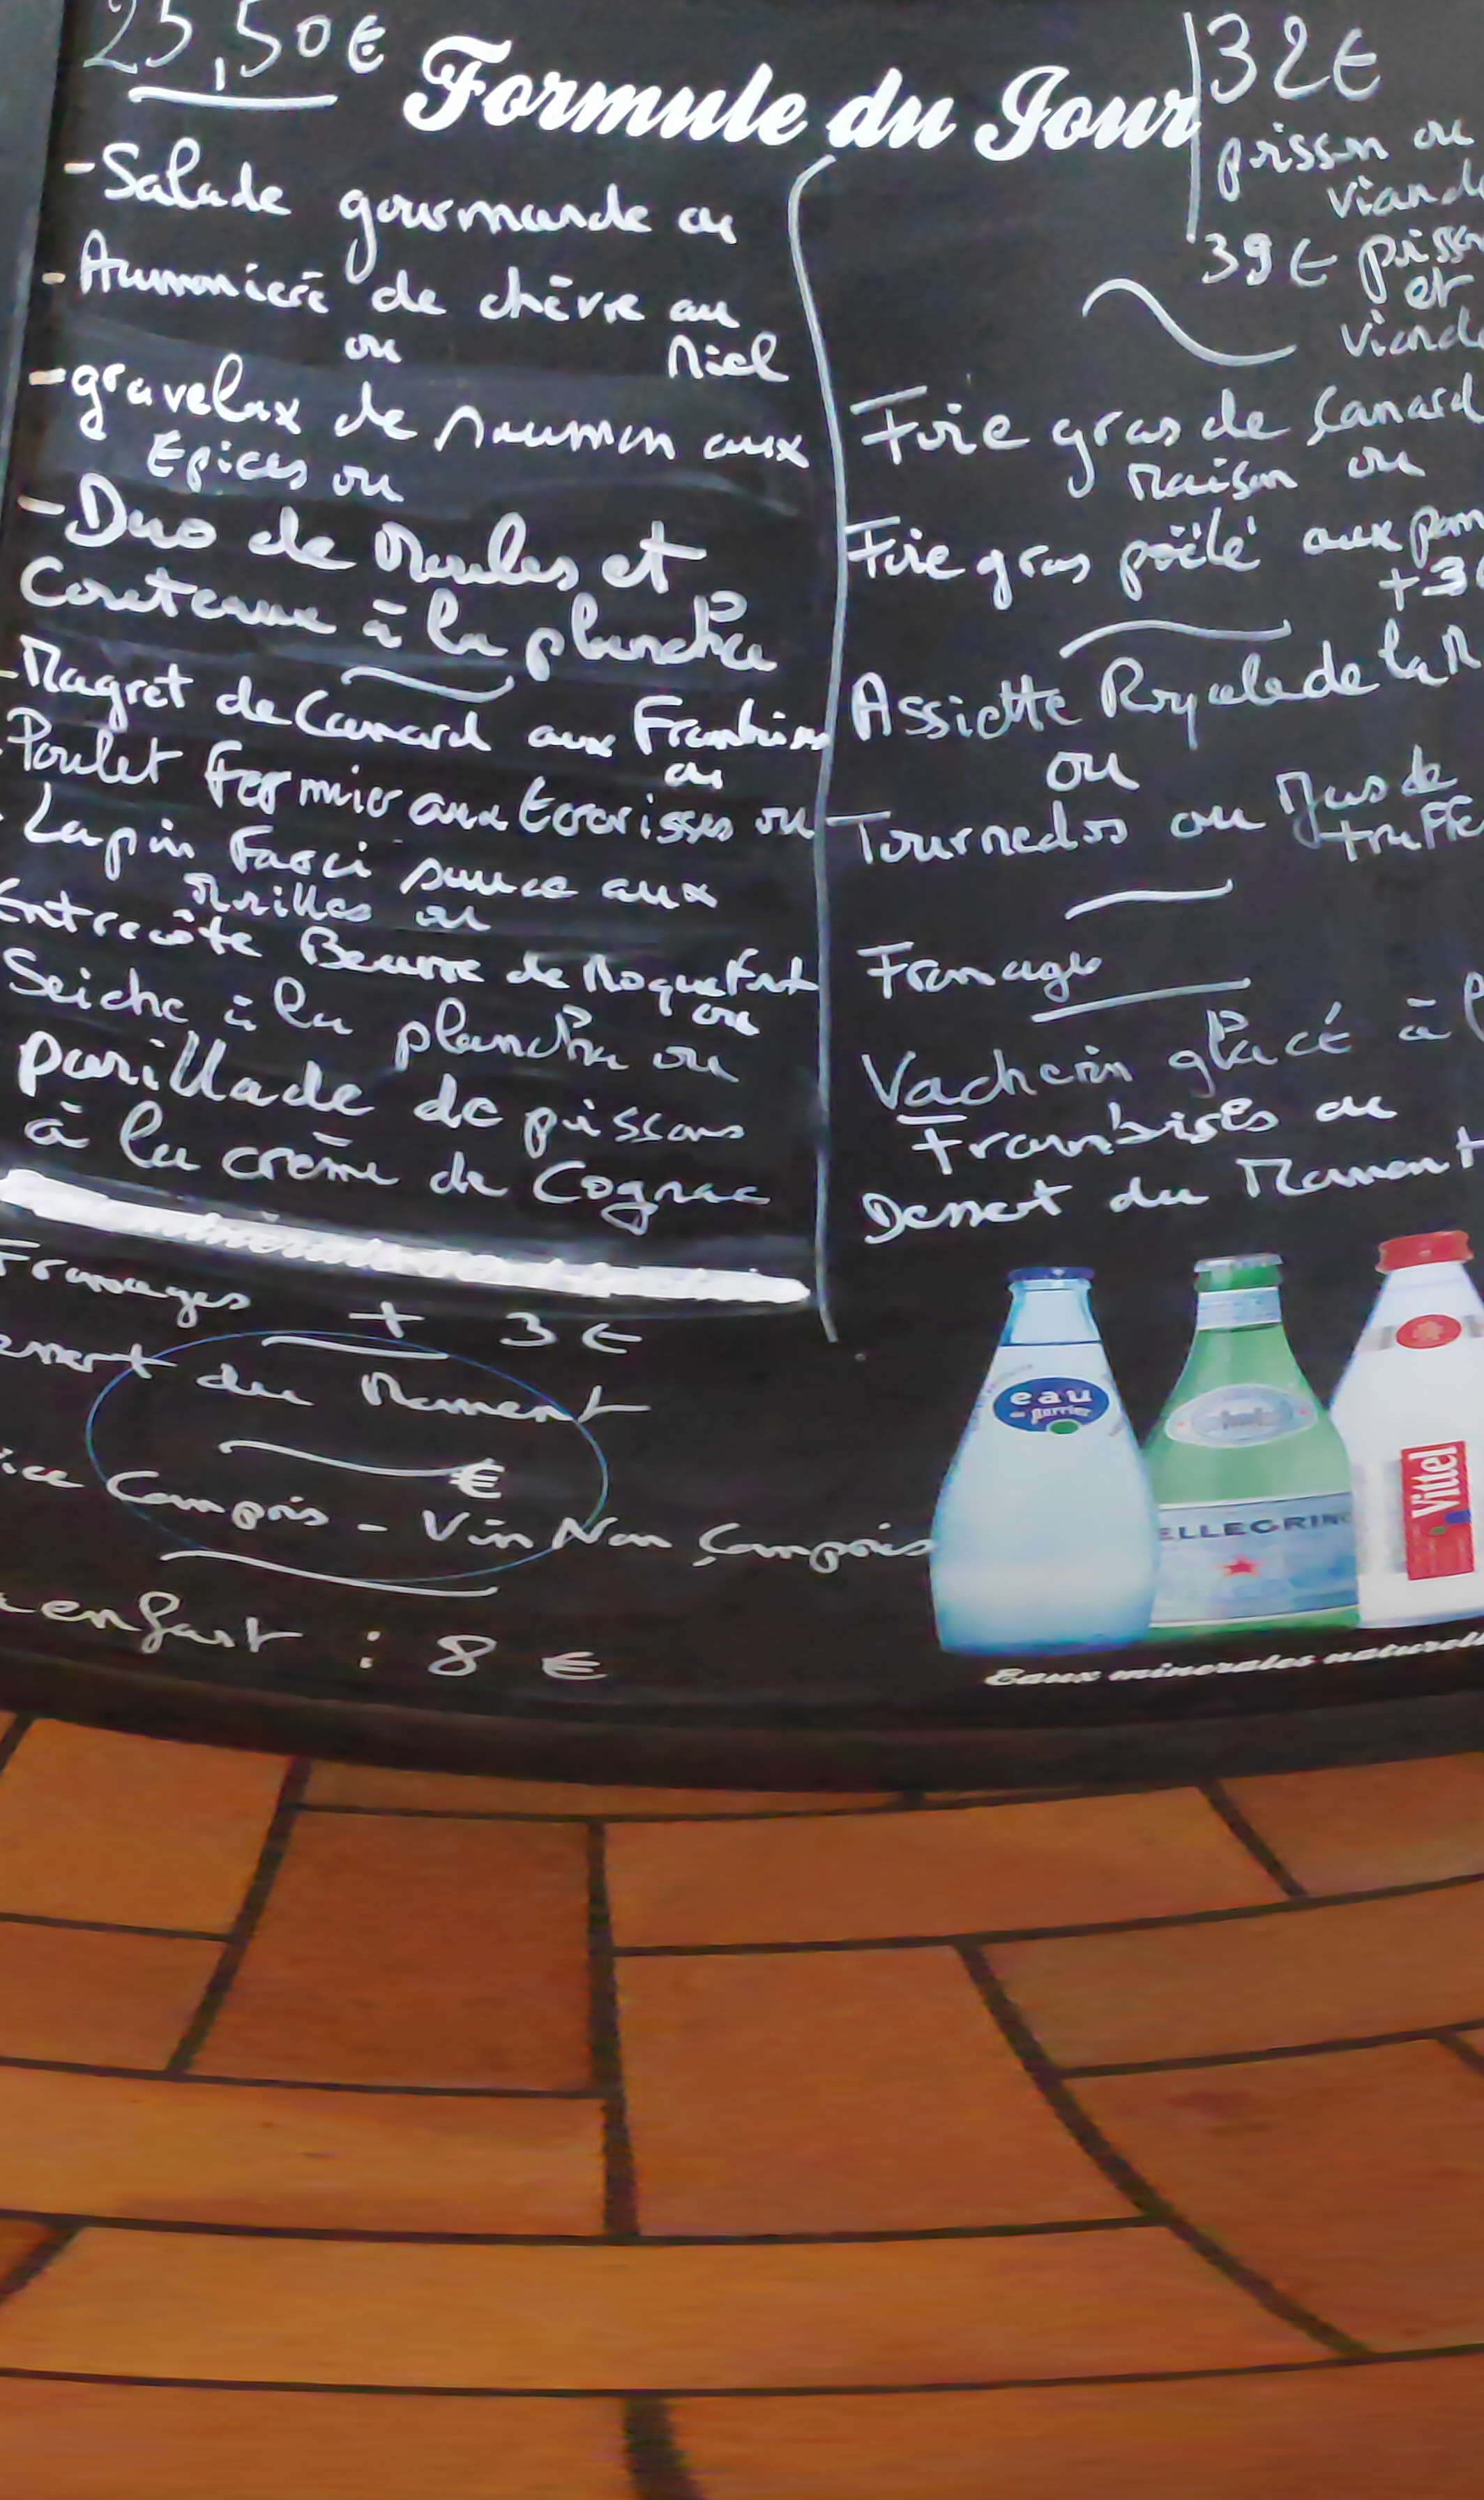 25,50€
Formule du Jour
-Salade gourmande ou
-Aumonière de chèvre au
ou Miel
-gravelax de saumon aux
Epices ou
-Duo de Moules et
Couteaux à la plancha
-Magret de Canard aux
ou
Poulet Fermier aux Ecrevisses ou
Lapin Farci sauce aux
Morilles ou
Entrecôte Beurre de Roquefort
ou
Seiche à la plancha ou
parillade de poissons
à la crème de Cognac
Fromages + 3€
du Moment
€
Compris - Vin Non Compris
enfant : 8 €
32€
poisson ou
39€
et
Foie gras de Canard
Maison ou
Foie gras poëlé aux
+3€
Assiette Royale de la
ou
Tournedos au Jus de
Fromages
Vachein glacé à
Framboises ou
Dessert du Moment
eau
de perrier
ELLEGRIN
Vittel
Eaux minerales